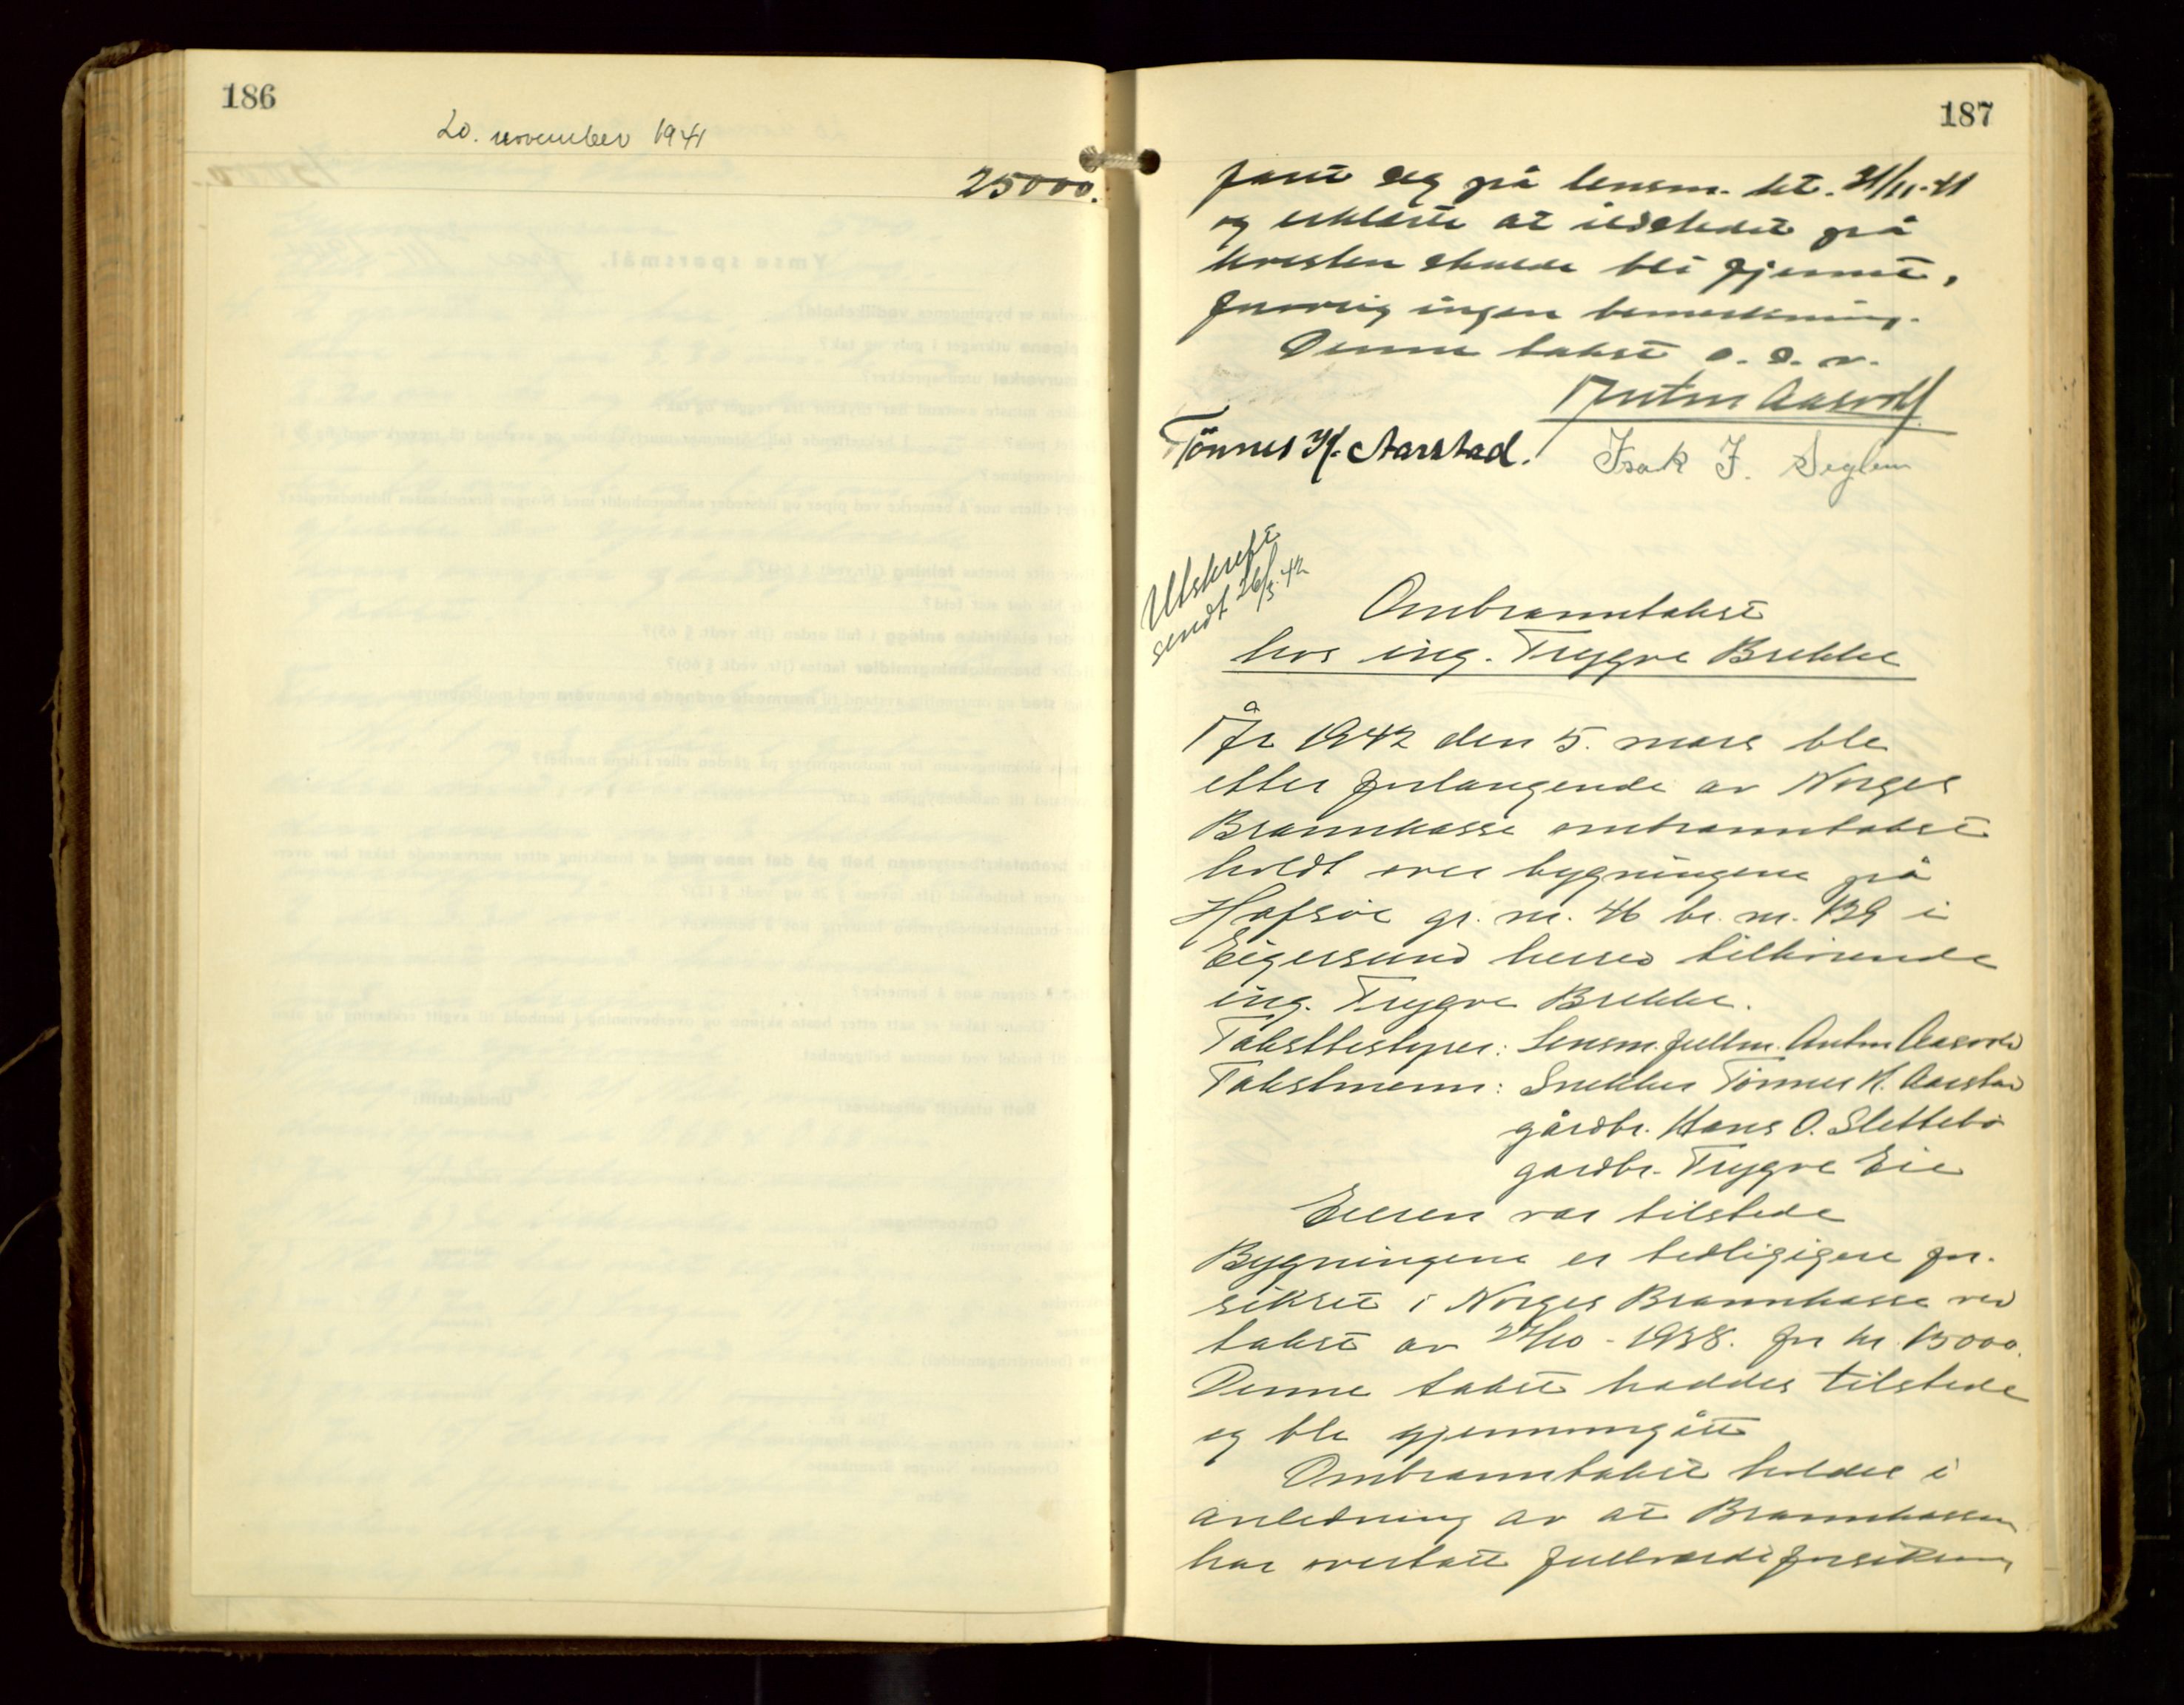 186
20. november 1941
25000.
187
seg på lensm. kt. 21/11-41
og erklærte at ildstedet på
kvisten skulde bli fjernet,
forøvrig ingen bemerkning.
Denne takst o. s. v.
Anton Aasvold
Tönnes H. Aarstad. Isak I. Seglem
Utskrift
sendt 26/3-42
Ombranntakst
hos ing. Trygve Brekke
År 1942 den 5. mars ble
etter forlangende av Norges
Brannkasse ombranntakst
holdt over bygningene på
Hafsøe gr. nr. 46 br. nr. 139 i
Eigersund herred tilhørende
ing. Trygve Brekke.
Takstbestyrer: Lensm. fullm. Anton Aasvold
Takstmenn: Snekker Tønnes H. Aarstad
gårdbr. Hans O. Slettebø
gardbr. Trygve Eie
Eieren var tilstede
Bygningene er tedligigere for-
sikret i Norges Brannkasse ved
takst av 27/10-1938. for kr. 15000.
Denne takst haddes tilstede
og ble gjennomgått
Ombranntakst holdes i
anledning av at Brannkassen
har overtatt fullverdiforsikring